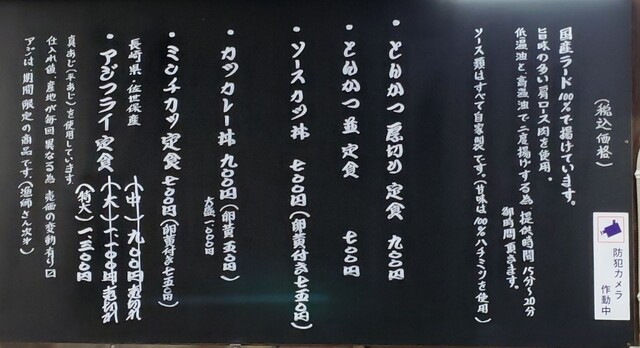 (税込価格)
国産ラード100%で揚げています。
旨味の多い肩ロース肉を使用。
低温油と、高温油で二度揚げする為、提供時間15分~20分
御時間頂きます。
ソース類はすべて自家製です。(甘味は100%ハチミツを使用)
・とんかつ厚切り定食 九〇〇
・とんかつ並定食 七〇〇
・ソースカツ丼 七〇〇円(卵黄付き七五〇円)
・カツカレー丼 九〇〇円(卵黄五〇円)
大盛一〇〇〇円
・ミンチカツ定食 七〇〇円(卵黄付き七五〇円)
長崎県・佐世保産
・アジフライ定食(中)九〇〇円売切れ
(大)一、一〇〇円売切れ
(特大)一、三〇〇円
真あじ(平あじ)を使用しています
仕入れ値、産地が毎回異なる為、売価の変動有り
アジは、期間限定の商品です。(漁師さん次第)
防犯カメラ
作動中